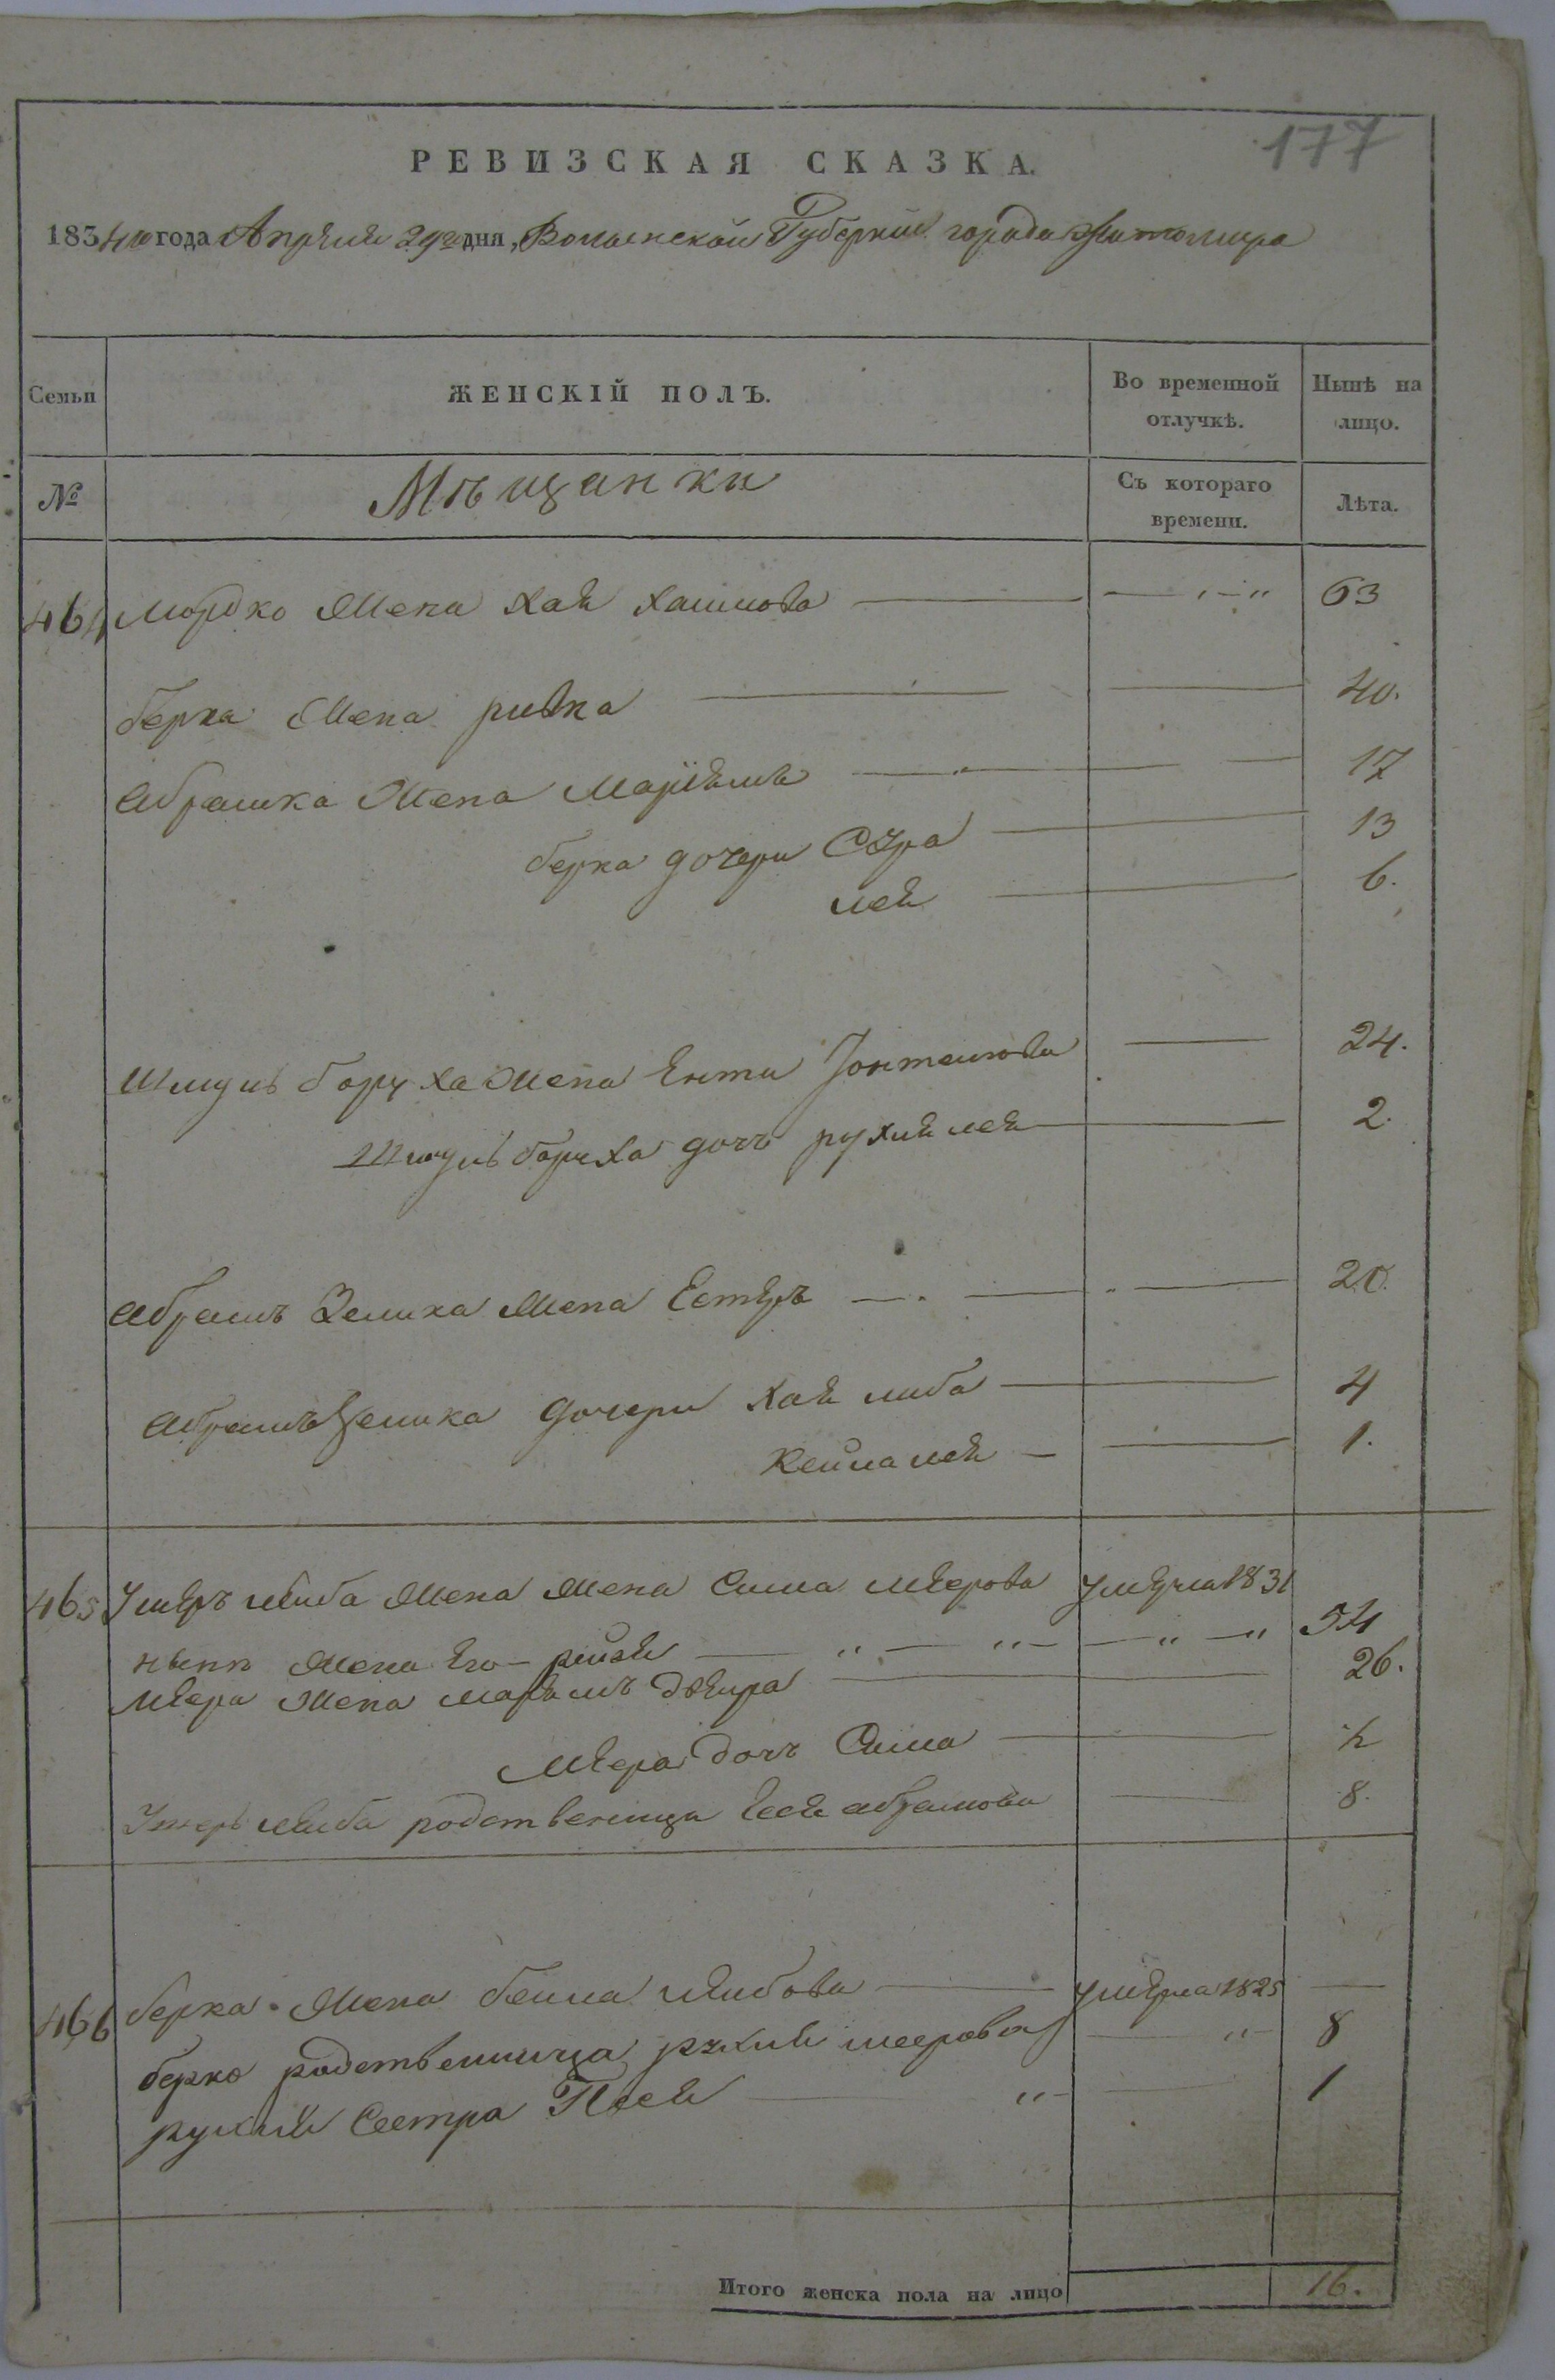 177
РЕВИЗСКАЯ СКАЗКА.
1834го года Апреля 29го дня, Волынской Губернии города Житомира
Семьи ЖЕНСКІЙ ПОЛЪ. Во временной отлучкѣ. Нынѣ на лицо.
№ Мѣщанки Съ котораго времени. Лѣта.
464 Мордко Жена Хая Хаимова 63
берка Жена ривка 40.
Абрамка Жена Марiямъ 17
берка дочери Сура 13
лея 6.
Шмуль боруха Жена Ента 24.
Шмуль боруха дочь рухля лея 2.
Абрамъ Зелика Жена Естеръ 20.
Абрамъ Зелика дочери Хая либа 4
Кейла лея 1.
465 Жена Жена Сима меерова умерла 1831
нынѣ Жена его рейзя 54
меера Жена марямъ двейра 26.
меера дочь Сима
родственица абрамова 8.
466 берка Жена бейла лейбова умерла 1825
берко родственница рухля меерова 8
рухли Сестра Песя 1
Итого женска пола на лицо 16.